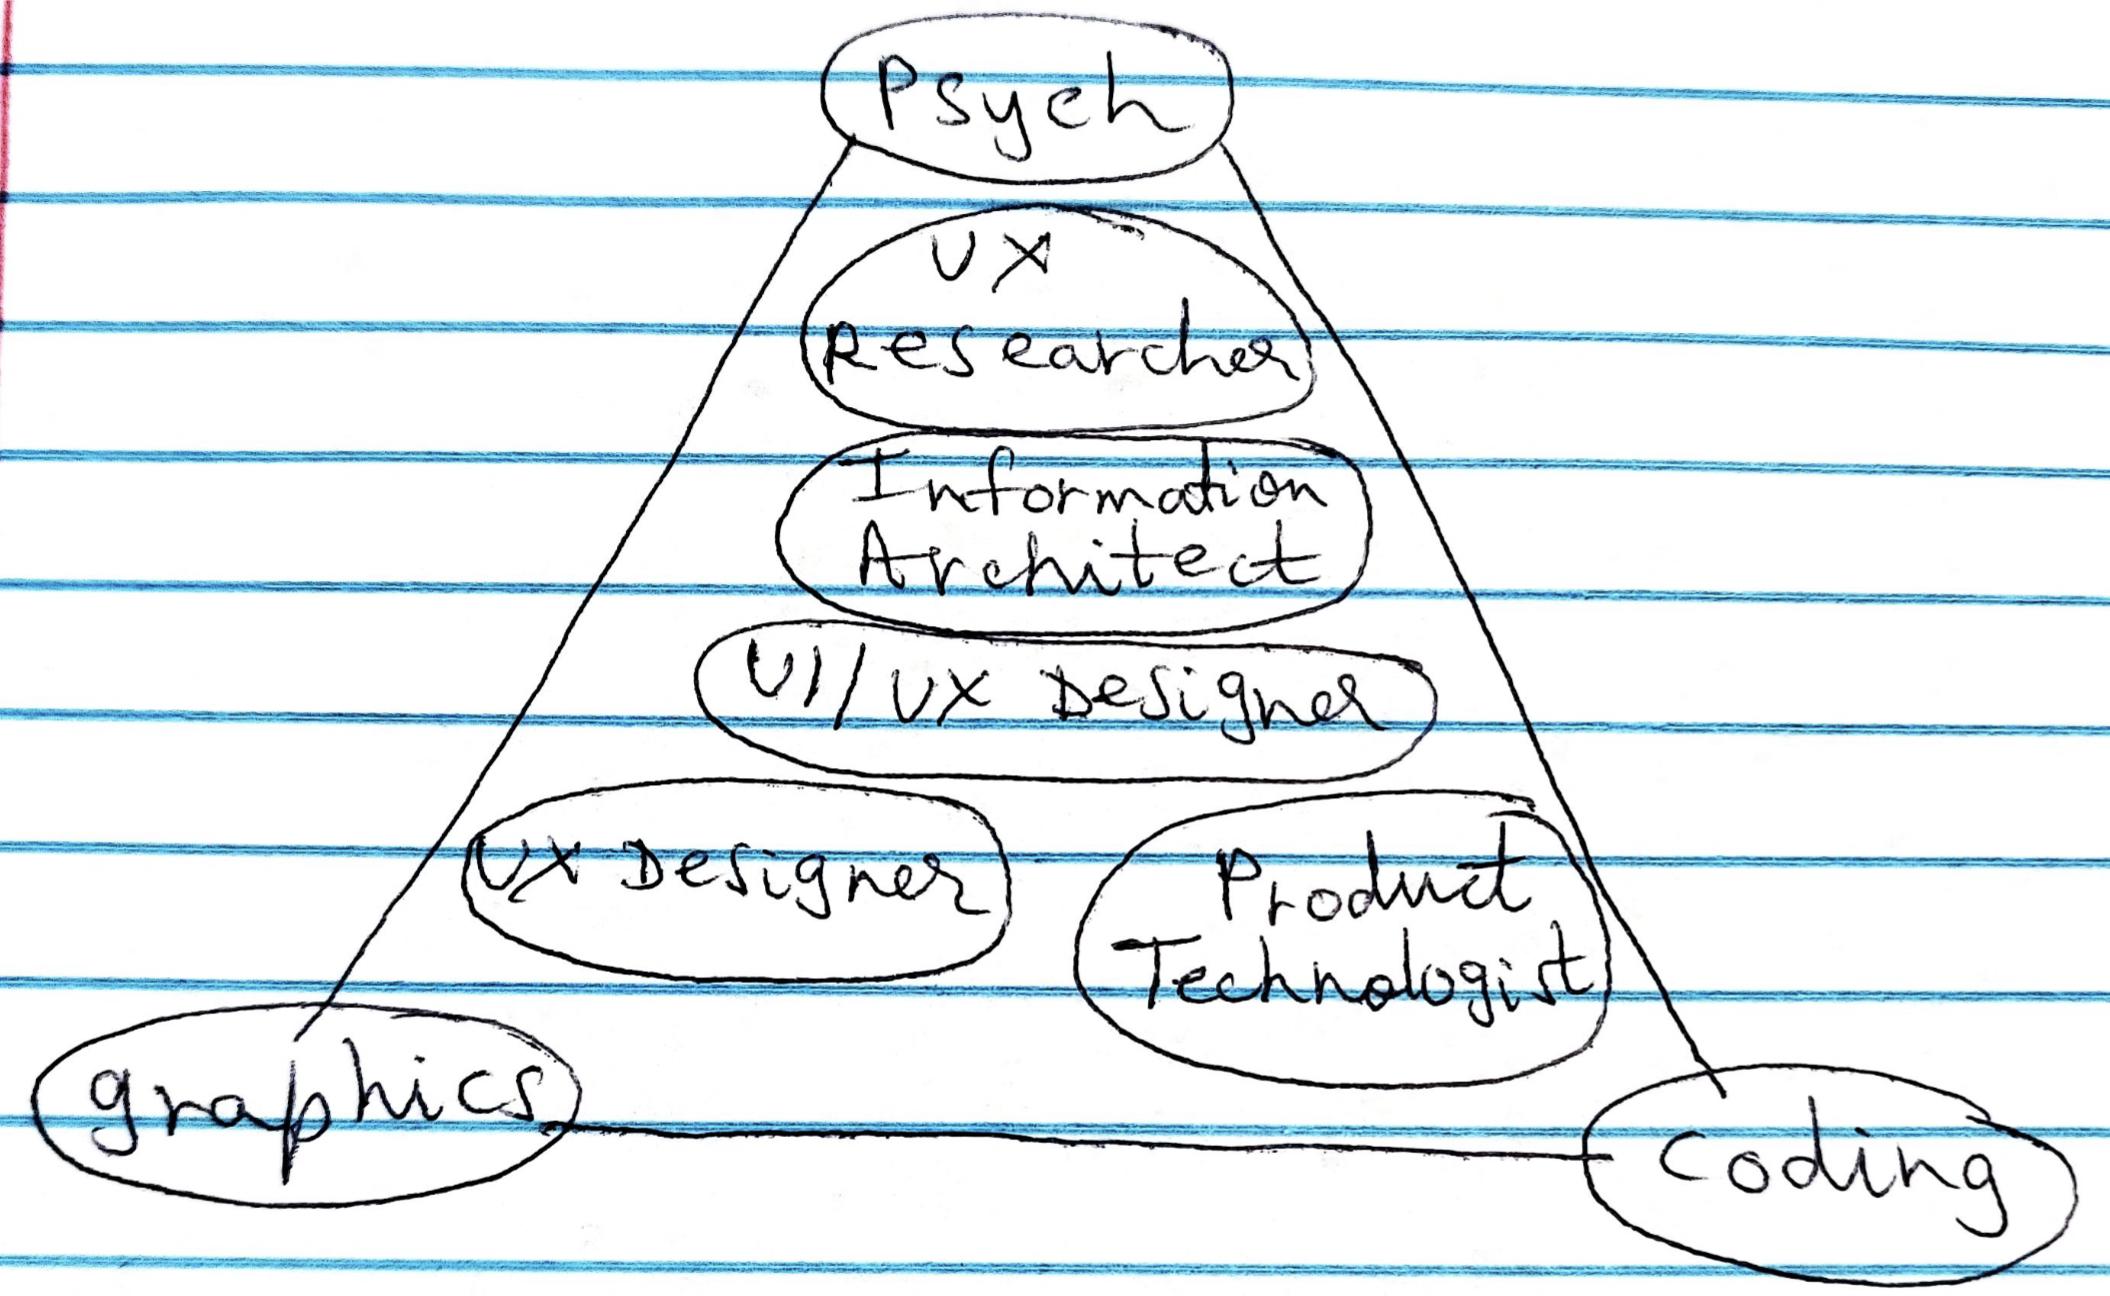 Psych
UX
Researcher
Information
Architect
UI/UX Designer
UX Designer
Product
Technologist
graphics
coding